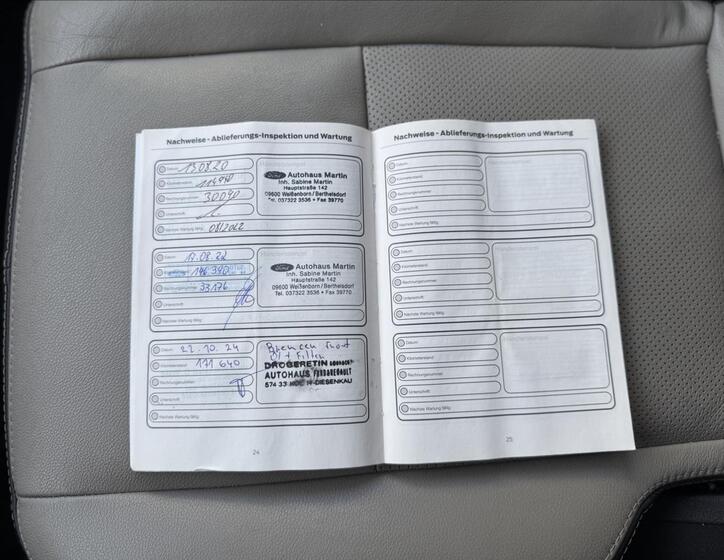 Nachweise - Ablieferungs-Inspektion und Wartung
Datum 13.08.20
Kilometerstand
Rechnungsnummer 30090
Unterschrift
Nächste Wartung fällig 08/2022
Ford Autohaus Martin
Inh. Sabine Martin
Hauptstraße 142
09600 Weißenborn/Berthelsdorf
Tel. 037322 3536 • Fax 39770
Datum 17.08.22
146390
Rechnungsnummer 33176
Unterschrift
Nächste Wartung fällig
Ford Autohaus Martin
Inh. Sabine Martin
Hauptstraße 142
09600 Weißenborn/Berthelsdorf
Tel. 037322 3536 • Fax 39770
Datum 22.10.24
Kilometerstand 171 640
Rechnungsnummer
Unterschrift
Nächste Wartung fällig
Bremsen Front
Öl + Filter
AUTOHAUS
24
Nachweise - Ablieferungs-Inspektion und Wartung
Datum
Kilometerstand
Rechnungsnummer
Unterschrift
Nächste Wartung fällig
Datum
Kilometerstand
Rechnungsnummer
Unterschrift
Nächste Wartung fällig
Datum
Kilometerstand
Rechnungsnummer
Unterschrift
Nächste Wartung fällig
25